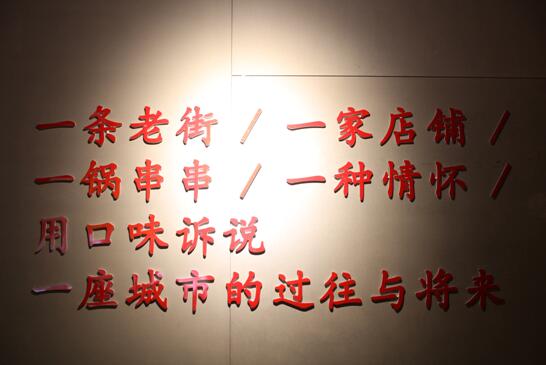 一条老街 / 一家店铺 /
一锅串串 / 一种情怀 /
用口味诉说
一座城市的过往与将来